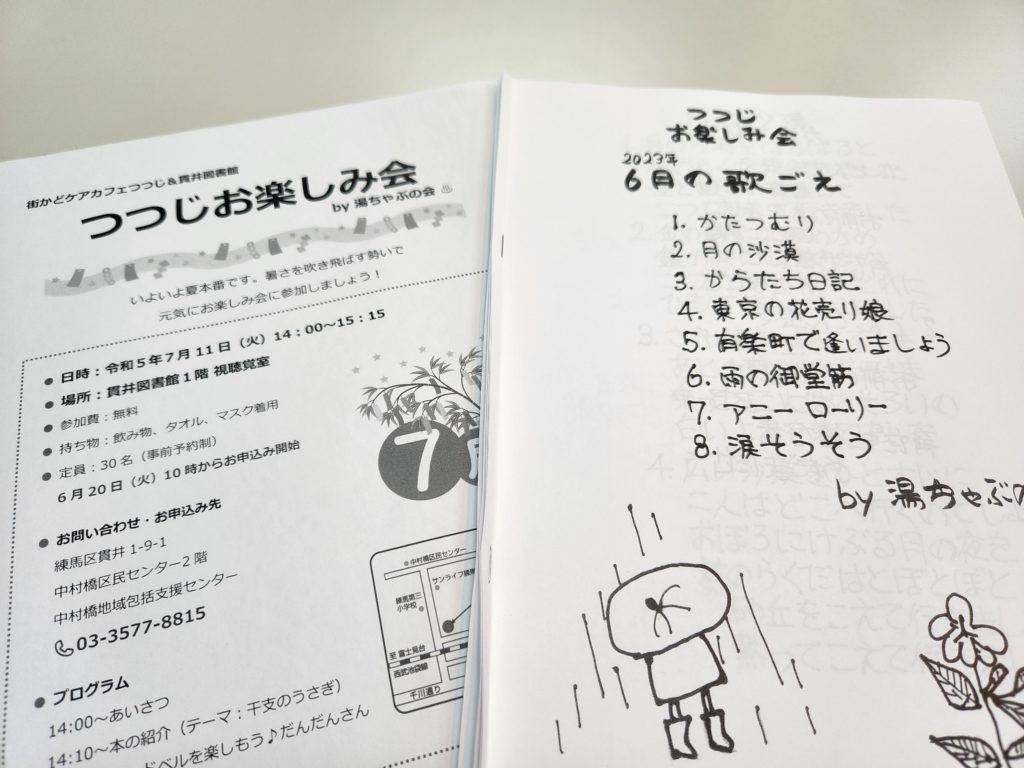 街かどケアカフェつつじ＆貫井図書館
つつじお楽しみ会
by 湯ちゃぶの会
いよいよ夏本番です。暑さを吹き飛ばす勢いで
元気にお楽しみ会に参加しましょう！
● 日時：令和5年7月11日（火）14：00～15：15
● 場所：貫井図書館1階 視聴覚室
● 参加費：無料
● 持ち物：飲み物、タオル、マスク着用
● 定員：30名（事前予約制）
6月20日（火）10時からお申込み開始
7
● お問い合わせ・お申込み先
練馬区貫井1-9-1
中村橋区民センター2階
中村橋地域包括支援センター
03-3577-8815
中村橋区民センター
サンライフ練馬
練馬第三
小学校
至 富士見台
西武池袋線
千川通り
● プログラム
14:00～あいさつ
14:10～本の紹介（テーマ：干支のうさぎ）
ドベルを楽しもう♪だんだんさん
つつじ
お楽しみ会
2023年
6月の歌ごえ
1. かたつむり
2. 月の沙漠
3. からたち日記
4. 東京の花売り娘
5. 有楽町で逢いましょう
6. 雨の御堂筋
7. アニーローリー
8. 涙そうそう
by 湯ちゃぶの